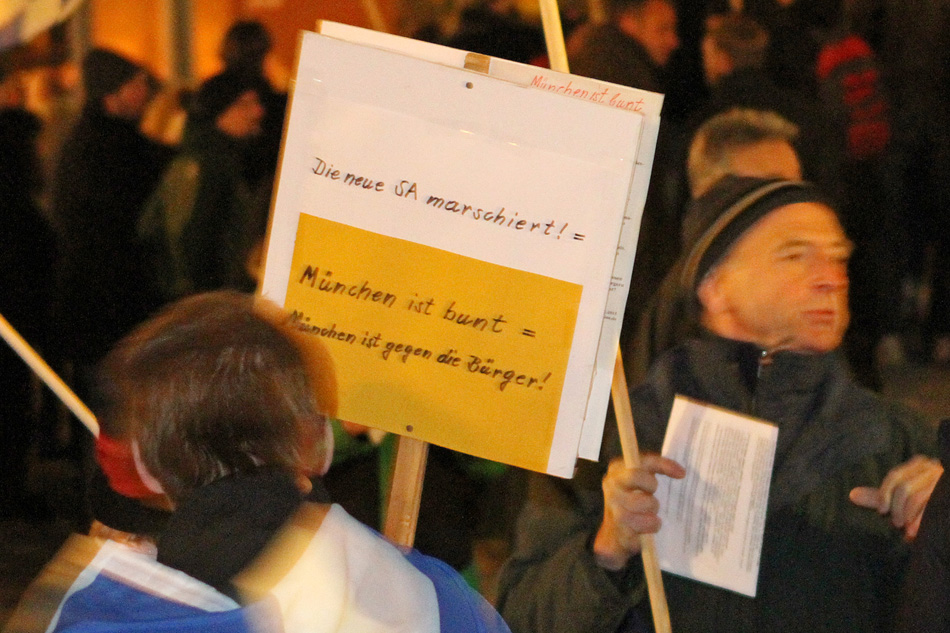 München ist bunt
Die neue SA marschiert! =
München ist bunt =
München ist gegen die Bürger!